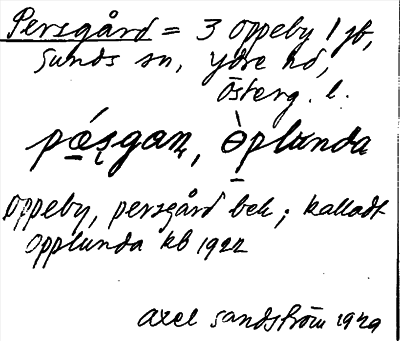 Persgård = 3 Oppeby 1 jb,
Sunds sn, Ydre hd,
Österg. l.
Oppeby, persgård bek; kalladt
Opplunda kb 1922
Axel Sandström 1929